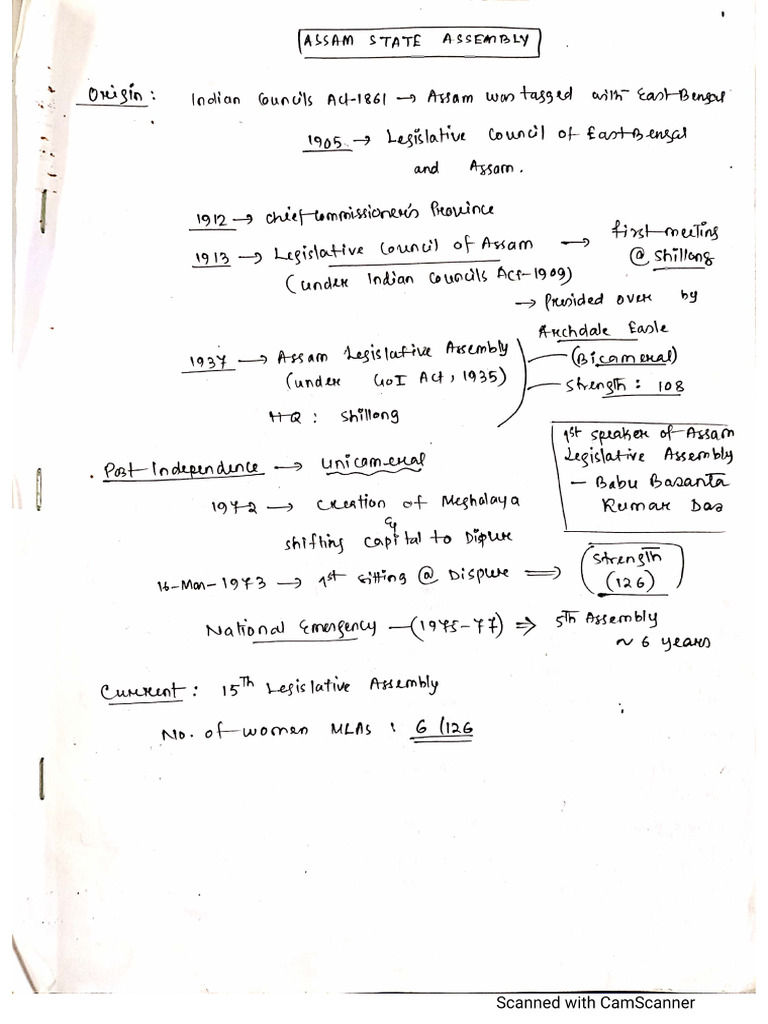 ASSAM STATE ASSEMBLY
Origin: Indian Councils Act-1861 → Assam was tagged with East Bengal
1905 → Legislative Council of East Bengal
and Assam.
1912 → Chief Commissioner's Province
1913 → Legislative Council of Assam → first meeting
@ Shillong
(under Indian Councils Act-1909)
→ Presided over by
Archdale Earle
1937 → Assam Legislative Assembly (Bicameral)
(under GoI Act, 1935) Strength: 108
HQ: Shillong
1st speaker of Assam
Legislative Assembly
- Babu Basanta
Kumar Das
Post Independence → unicameral
1972 → Creation of Meghalaya
&
shifting capital to Dispur
16-Mar-1973 → 1st sitting @ Dispur ⇒ Strength
(126)
National Emergency - (1975-77) ⇒ 5th Assembly
~ 6 years
Current: 15th Legislative Assembly
No. of women MLAs: 6/126
Scanned with CamScanner